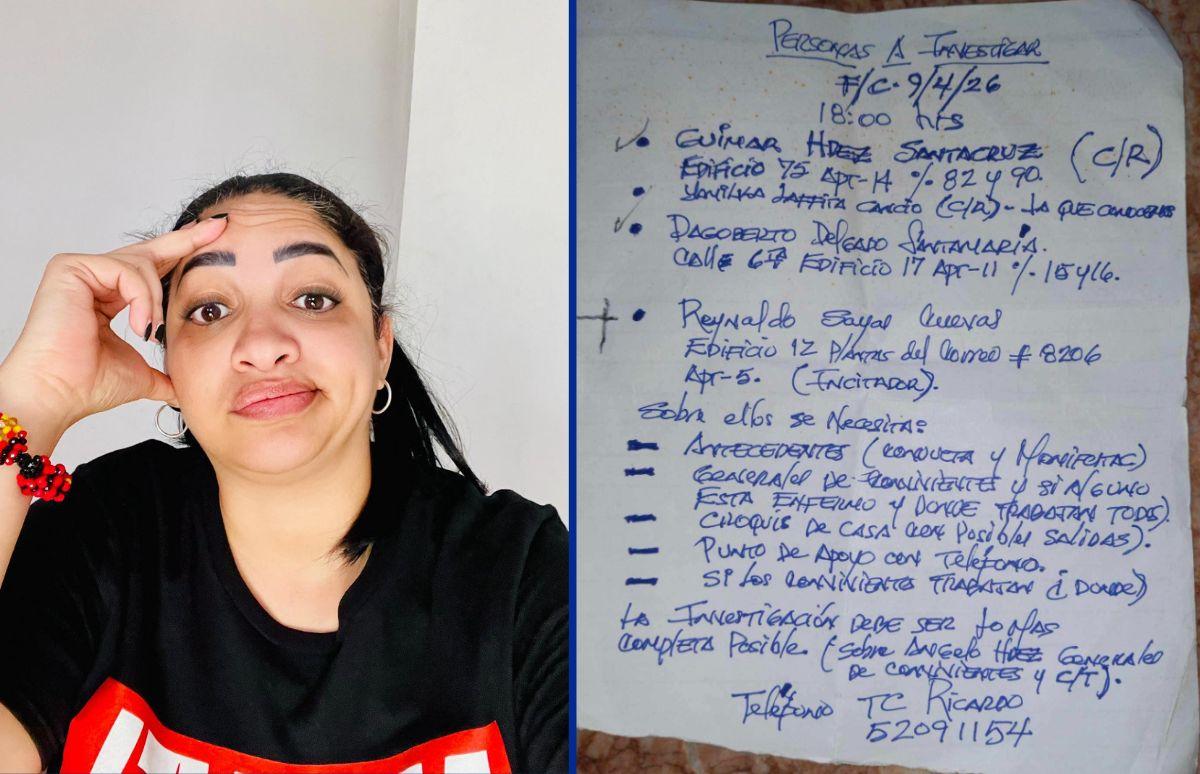 PERSONAS A INVESTIGAR
F/C. 9/4/26
18:00 hrs
GUIMAR HDEZ SANTACRUZ (C/R)
EDIFICIO 75 APT-14 % 82 y 90.
CANCIO (C/R) - LA QUE CONOCEMOS
DAGOBERTO DELGADO SANTAMARÍA.
CALLE 6TA EDIFICIO 17 APT-11 % 15 y 16.
Reynaldo Sayas Cuevas
EDIFICIO 12 PLANTAS del CORREO # 8206
APT-5. (INCITADOR).
Sobre ellos se Necesita:
ANTECEDENTES (CONDUCTA y MANIFESTAC)
GENERALES DE CONVIVIENTES y SI ALGUNO
ESTA ENFERMO y DONDE TRABAJAN TODOS).
CROQUIS DE CASA CON POSIBLES SALIDAS).
PUNTO DE APOYO CON TELÉFONO.
SI LOS CONVIVIENTES TRABAJAN (DONDE)
LA INVESTIGACIÓN DEBE SER LO MAS
COMPLETA POSIBLE. (SOBRE ANGELO HDEZ GENERALES
DE CONVIVIENTES y C/T).
Teléfono TC RICARDO
52091154